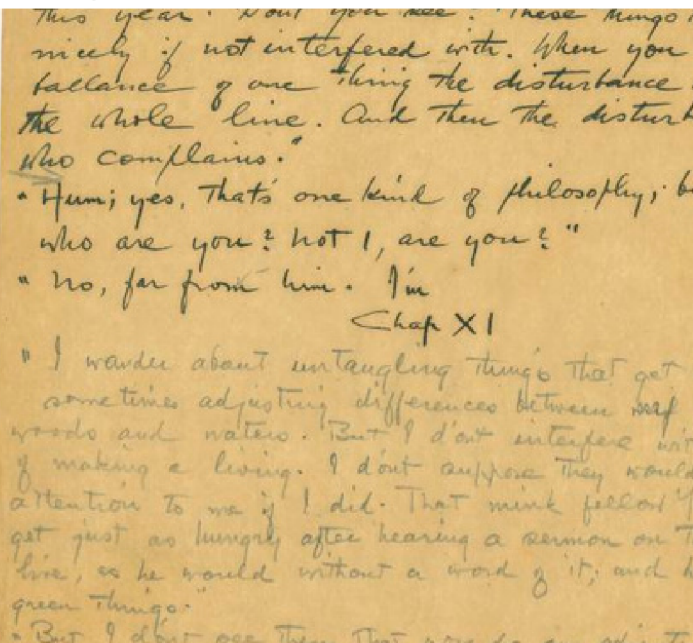 this year. Dont you see. These things
nicely if not interfered with. When you
ballance of one thing the disturbance
the whole line. And then the disturb
who complains."
"Hum; yes, that's one kind of philosophy; b
who are you? not I, are you?"
"No, far from him. I'm
Chap XI
"I wander about untangling things that get
sometimes adjusting differences between
woods and waters. But I d'ont interfere wit
of making a living. I d'ont suppose they would
attention to me if I did. That mink fellow
get just as hungry after hearing a sermon on
live, as he would without a word of it; and
green things."
"But I d'ont see them that